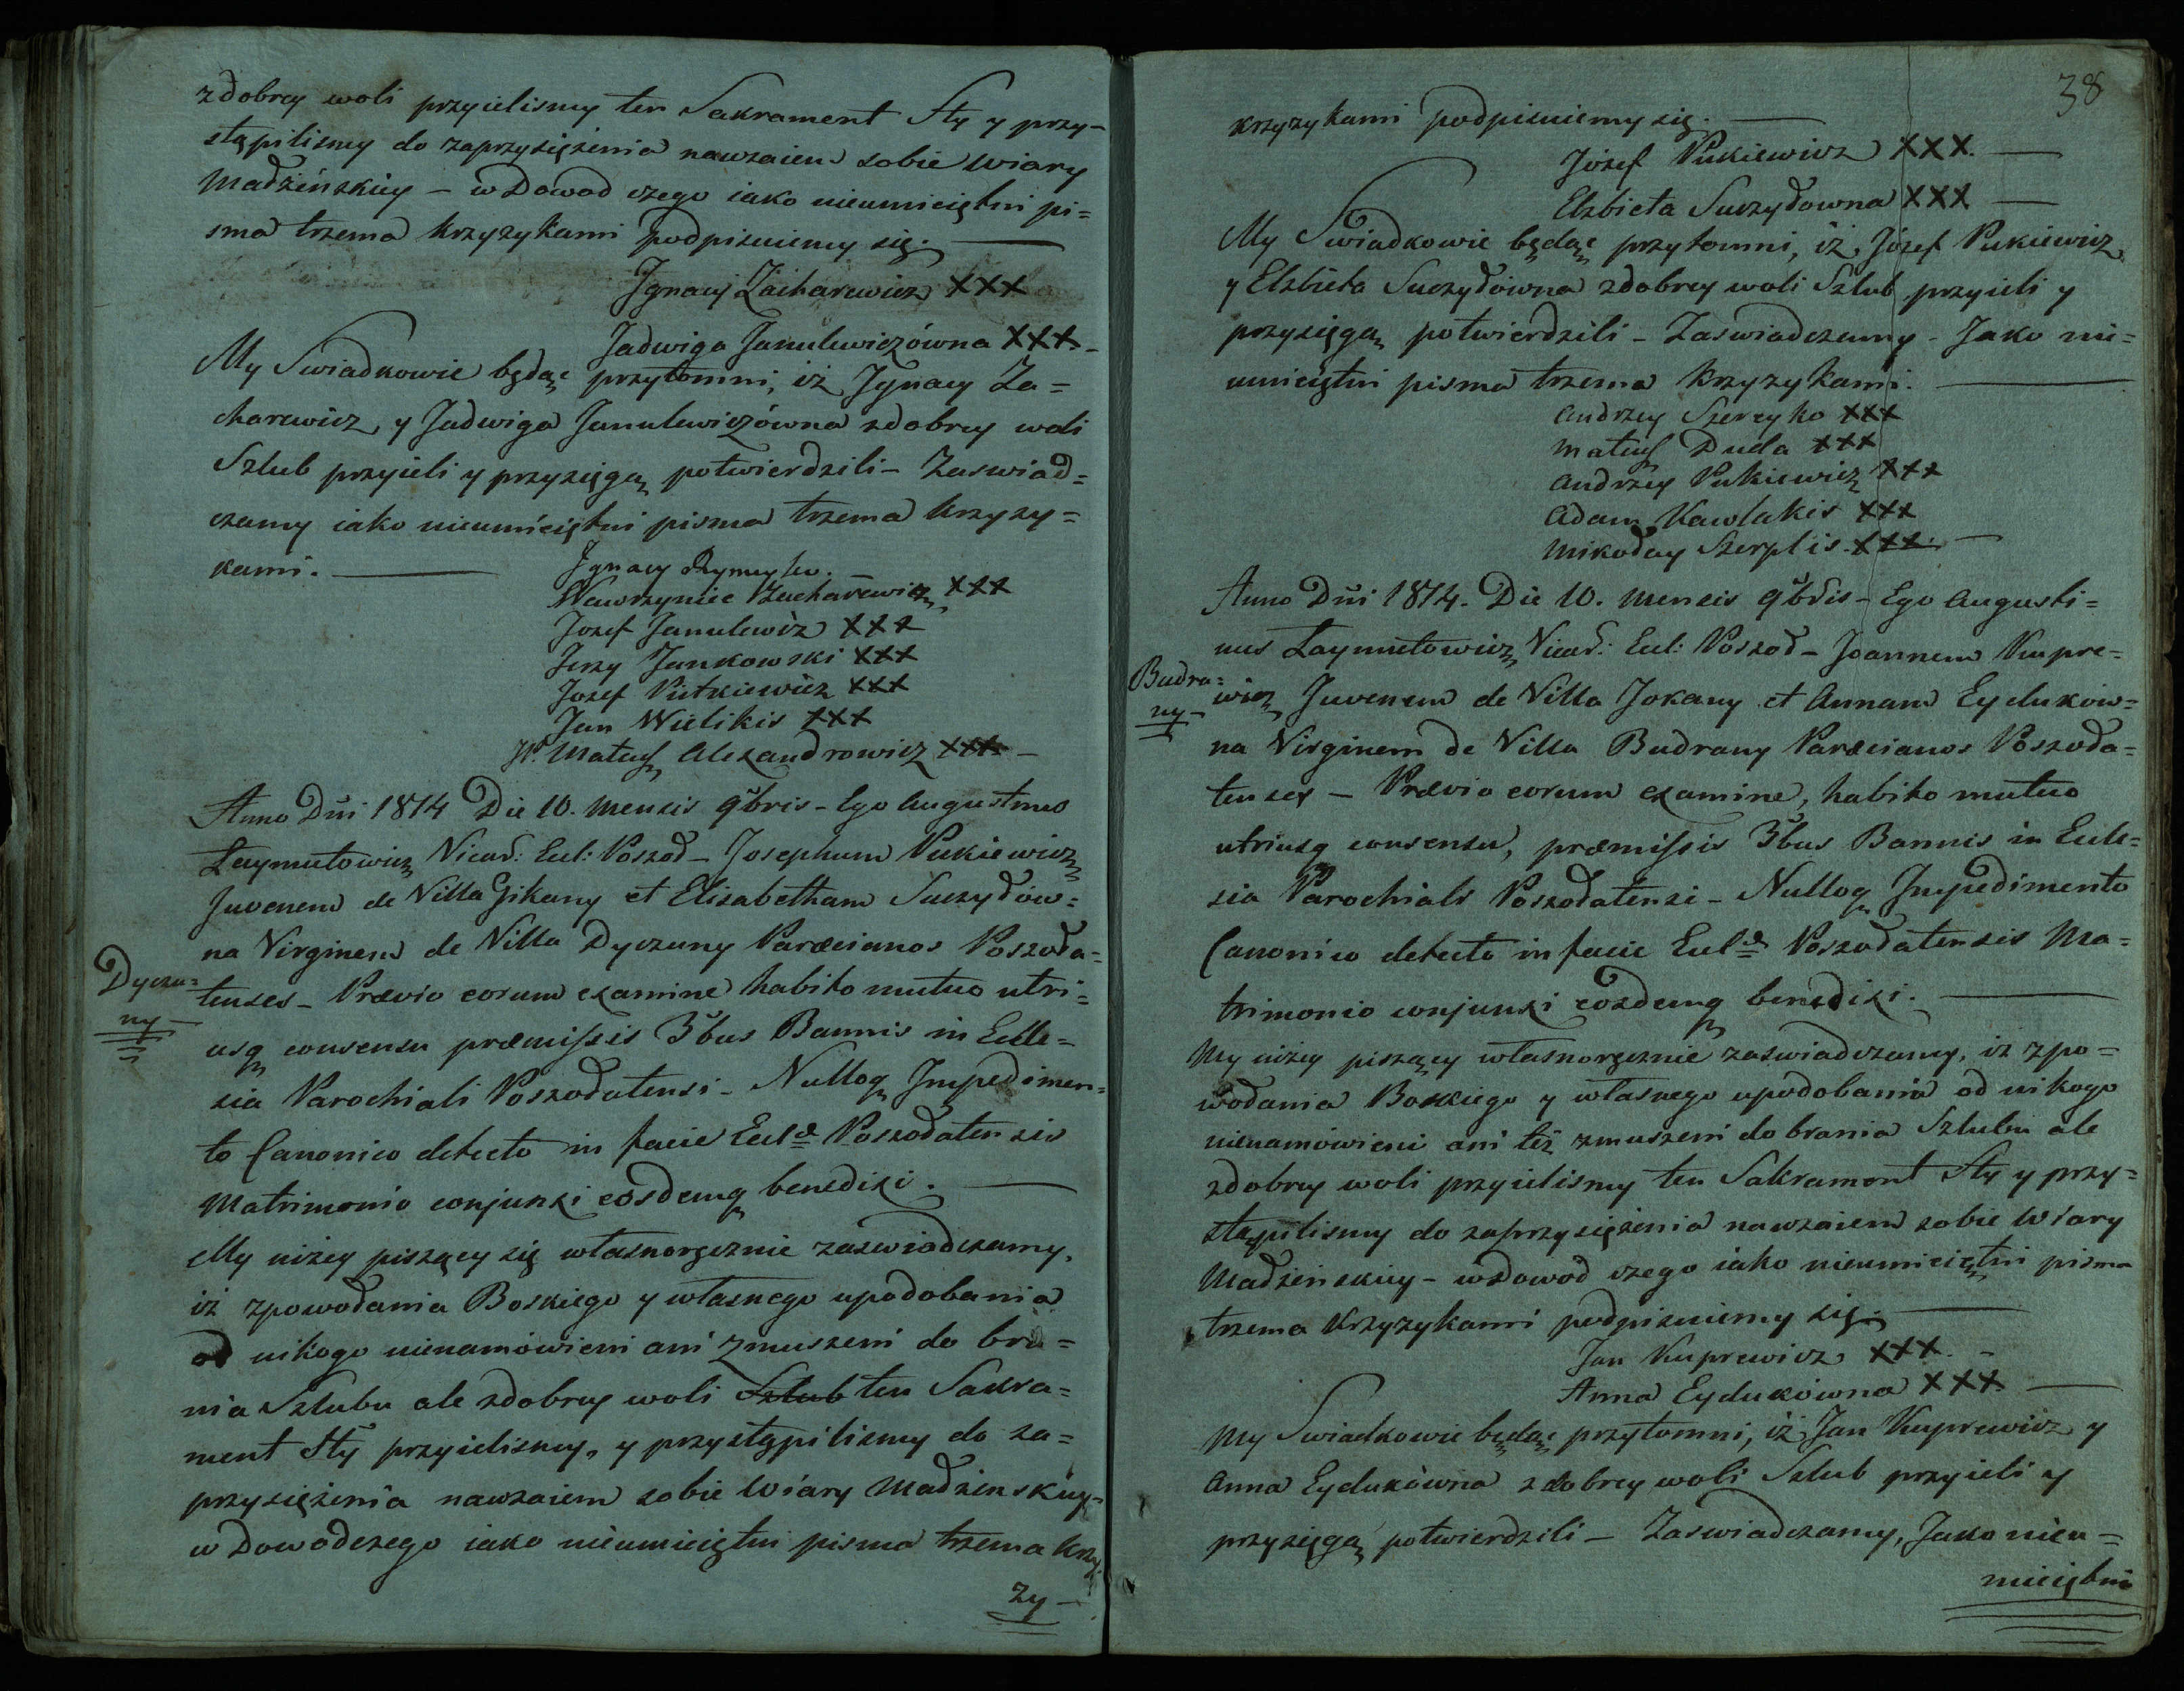 zdobrey woli przyielismy ten Sakrament Sty y przy-
stąpilismy do zaprzysiężenia nawzaiem sobie Wiary
Madżeńskiey - w Dowod czego iako nieumieiętni pi=
sma trzema krzyzykami podpisuiemy się.
Jgnacy Zacharewicz XXX
Jadwiga Janulewiczówna XXX.-
My Swiadkowie będąc przytomni, iż Jgnacy Za=
charewicz, y Jadwiga Janulewiczówna zdobrey woli
Szlub przyieli y przysięgą potwierdzili - Zaswiad=
czamy iako nieumieiętni pisma trzema krzyzy=
kami.
Jgnacy
Wawrzyniec Zacharewicz XXX
Jozef Janulewicz XXX
Jerzy Jankowski XXX
Jozef Pietkiewicz XXX
Jan Wielikis XXX
JP. Mateusz Alexandrowicz XXX -
Anno Dni 1814 Die 10. Mensis 9bris - Ego Augustinus
Laymutowicz Vicar: Eccl: Poszod - Josephum Pukiewicz
Juvenem de Villa Gikany et Elisabetham Suczydów=
na Virginem de Villa Dyczuny Paræcianos Poszoda=
Dyczu=
ny -
tenses - Prævio eorum examine habito mutuo utri=
usq consensu præmissis 3bus Bannis in Eccle=
sia Parochiali Poszodatensi - Nulloq Impedimen=
to Canonico detecto in facie Eccl\æ Poszodatensis
Matrimonio conjunxi eosdemq benedixi.
My niżey piszący się własnoręcznie zaswiadczamy,
iż zpowodania Boskiego y własnego upodobania
od nikogo nienamówieni ani zmuszeni do bra=
nia Szlubu ale zdobrey woli Szlub ten Sakra=
ment Sty przyielismy, y przystąpilismy do za=
przysiężenia nawzaiem sobie Wiary Madżenskiey=
w Dowodczego iako nieumieiętni pisma trzema krzy
zy -
38
krzyzykami podpisuiemy się.
Józef Pukiewicz XXX.
Elzbieta Suczydowna XXX
My Swiadkowie będąc przytomni, iż Józef Pukiewicz
y Elzbieta Suczydówna zdobrey woli Szlub przyieli y
przysięgą potwierdzili - Zaswiadczamy - Jako nie=
umieiętni pisma trzema krzyzykami.
Andrzey Szereyko XXX
Mateusz Duda XXX
Andrzey Pukiewicz XXX
Adam Kawlakis XXX
Mikołay Szerplis. XXX. -
Anno Dni 1814. Die 10. Mensis 9bris - Ego Augusti=
nus Laymutowicz Vicar: Eccl: Poszod - Joannem Kupre=
Budra=
ny -
wicz Juvenem de Villa Jokany et Annam Eydukow=
na Virginem de Villa Budrany Paræcianos Poszoda=
tenses - Prævio eorum examine, habito mutuo
utriusq consensu, præmissis 3bus Bannis in Eccle=
sia Parochiali Poszodatensi - Nulloq Impedimento
Canonico detecto in facie Eccl\æ Poszodatensis Ma=
trimonio conjunxi eosdemq benedixi.
My niżey piszący własnoręcznie zaswiadczamy, iż zpo=
wodania Boskiego y własnego upodobania od nikogo
nienamówieni ani też zmuszeni do brania Szlubu ale
zdobrey woli przyielismy ten Sakrament Sty y przy=
stąpilismy do zaprzysiężenia nawzaiem sobie Wiary
Madżenskiey - w Dowod czego iako nieumieiętni pisma
trzema krzyzykami podpisuiemy się.
Jan Kuprewicz XXX. -
Anna Eydukówna XXX
My Swiadkowie będąc przytomni, iż Jan Kuprewicz y
Anna Eydukówna zdobrey woli Szlub przyieli y
przysięgą potwierdzili - Zaswiadczamy, Jako nieu=
mieiętni